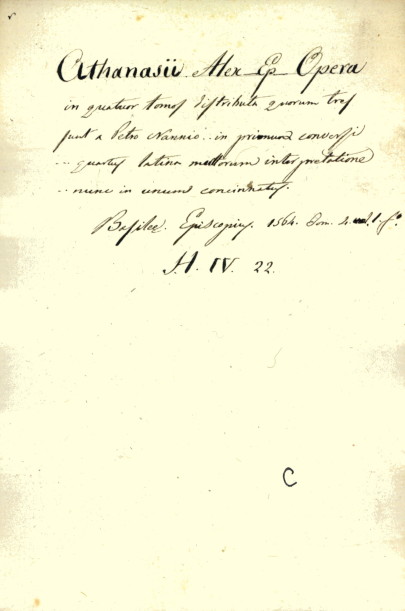 Athanasii Alex Ep Opera
in quatuor tomos distributa quorum tres
sunt a Petro Nannio .. in primum conversi
... quartus latina multorum interpretatione
.. nunc in unum concinnatus.
Basileæ. Episcopius. 1564. Tom. 4 vol. 1. fo.
H. IV. 22.
C